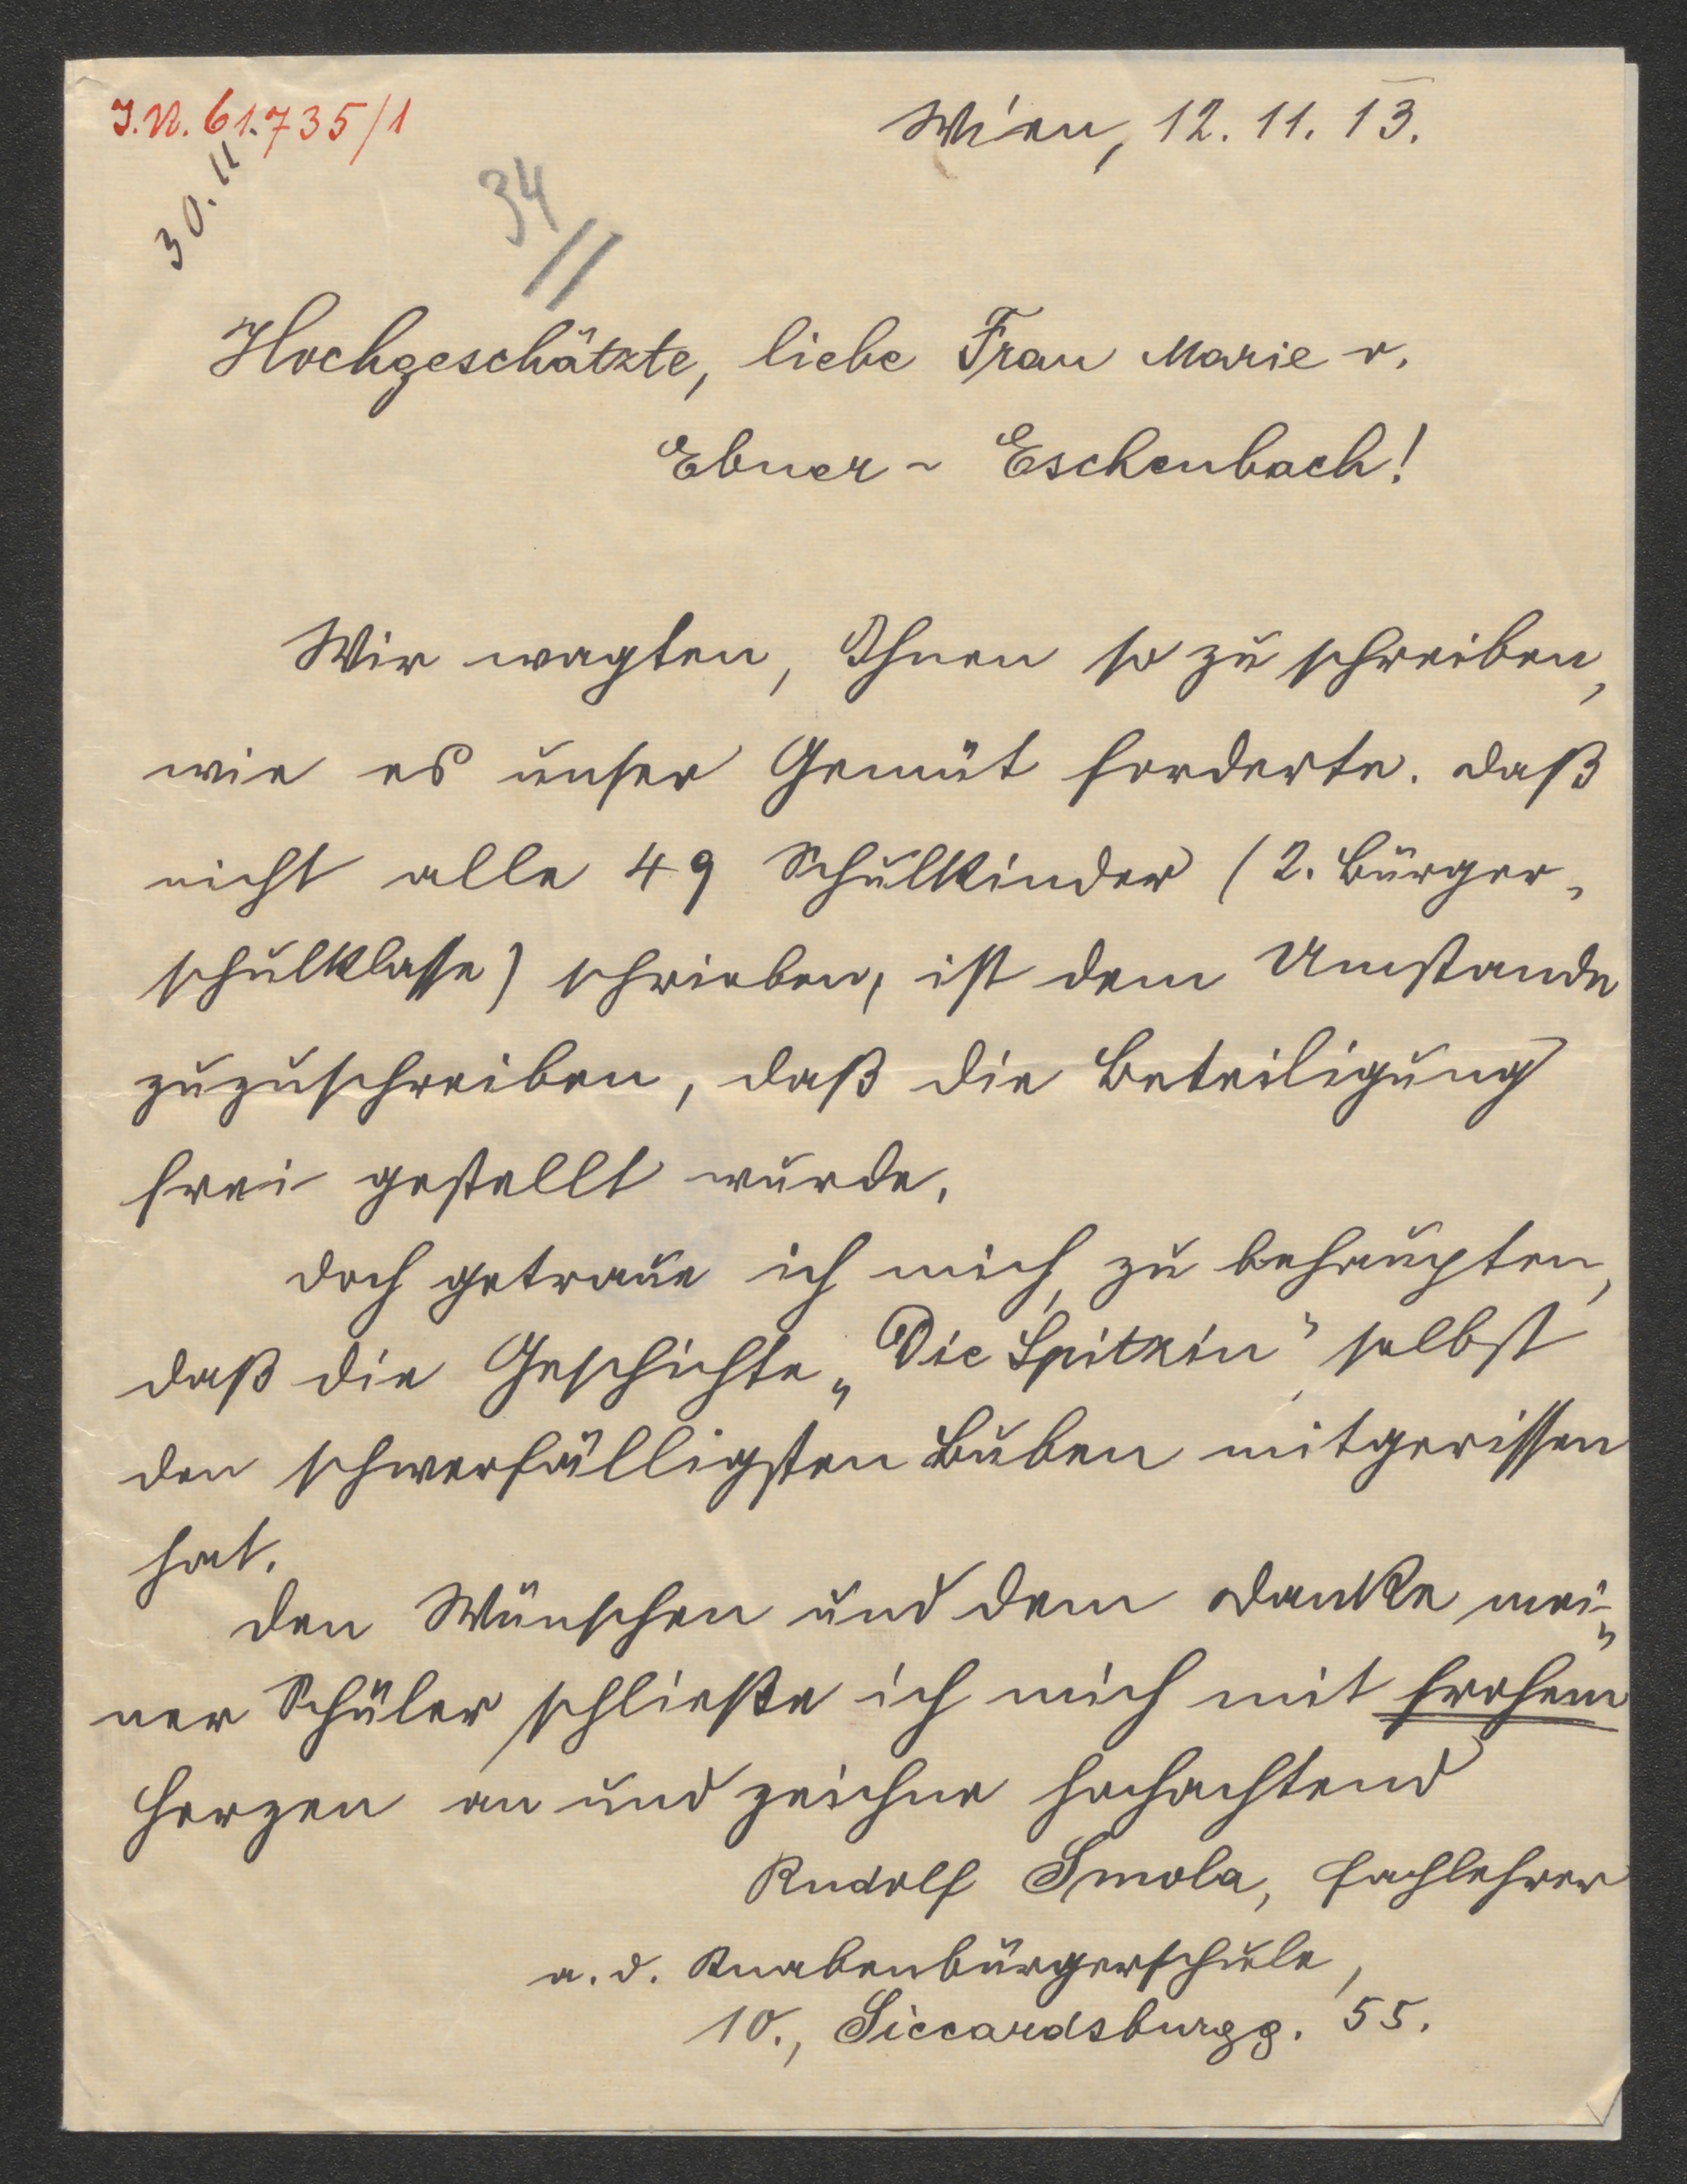 J.N. 61.735/1
Wien, 12. 11. 13.
30. 11
34
Hochgeschätzte, liebe Frau Marie v.
Ebner - Eschenbach!
Wir wagten, Ihnen so zu schreiben,
wie es unser Gemüt forderte. Daß
nicht alle 49 Schulkinder (2. Bürger-
schulklasse) schrieben, ist dem Umstande
zuzuschreiben, daß die Beteiligung
frei gestellt wurde.
Doch getraue ich mich, zu behaupten,
daß die Geschichte „Die Spitzin" selbst
den schwerfälligsten Buben mitgerissen
hat.
Den Wünschen und dem Danke mei-
ner Schüler schließe ich mich mit frohem
Herzen an und zeichne hochachtend
Rudolf Smola, Fachlehrer
a. d. Knabenbürgerschule,
10., Siccardsburgg. 55.